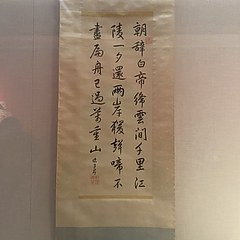 朝辞白帝綵雲間千里江
陵一夕還兩岸猨聲啼不
盡扁舟已過萬重山